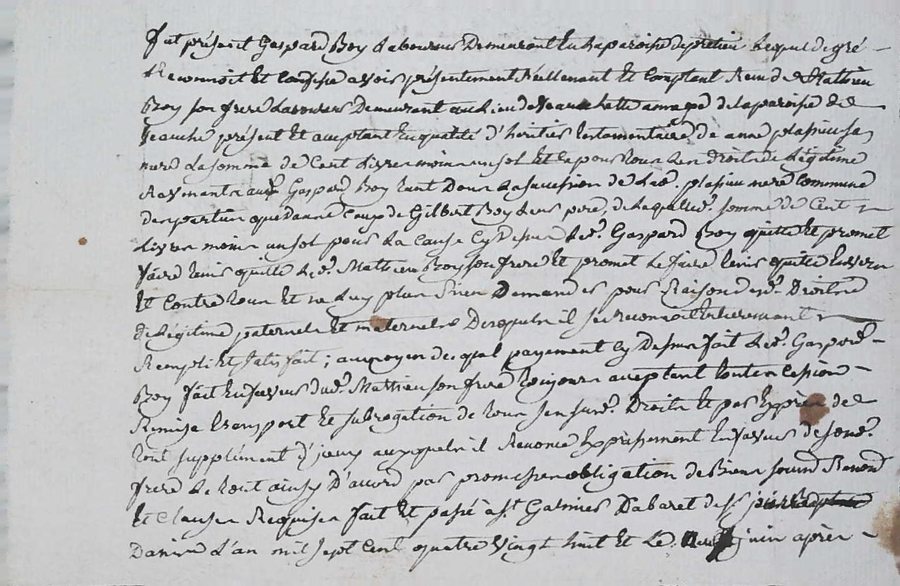 fut présent Gaspard Boy laboureur demeurant en la paroisse de pretieu lequel de gré
Reconnoit et Confesse avoir présentement Réellement et Comptant Receu de Mathieu
Boy son frere laboureur demeurant au lieu de la paroisse de
present et aceptant en qualité d'heritier testamentaire de anne sa
mere la somme de Cent livres moins un sol et ce pour tous les droits de légitime
aud. Gaspard Boy tant dans la succession de lad. mere commune
que dans de Gilbert Boy leur pere, de laquelle somme de Cent
livres moins un sol pour la Cause Cy dessus led. Gaspard Boy quitte et promet
faire tenir quitte led. Mathieu Boy son frere et promet le faire tenir quitte envers
et Contre tous et ne luy plus Rien Demander pour Raison desd. Droits
de légitime paternels et maternels desquels il se reconnoit Entierement
Rempli et Satisfait; au moyen duquel payement Cy dessus fait led. Gaspard
Boy fait en faveur dud. Mathieu son frere toujours aceptant toute cession
Remise transport et subrogation de tous sesd. Droits et par Exprès de
tout supplément d'iceux auxquels il Renonce Expressement en faveur de sond.
frere le tout ainsy d'accord par promesse obligation de Biens soumis Renond.
et Clauses Requises fait et passé a St. Galmier
l'an mil sept Cent quatre vingt huit et le juin après